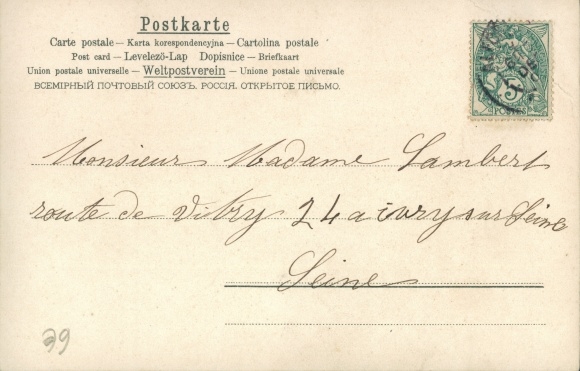 Postkarte
Carte postale — Karta korespondencyjna — Cartolina postale
Post card — Levelező-Lap Dopisnice — Briefkaart
Union postale universelle — Weltpostverein — Unione postale universale
ВСЕМІРНЫЙ ПОЧТОВЫЙ СОЮЗЪ. РОССІЯ. ОТКРЫТОЕ ПИСЬМО.
5
POSTES
Monsieur Madame Lambert
route de Vitry 24 a ivry sur Seine
Seine
39